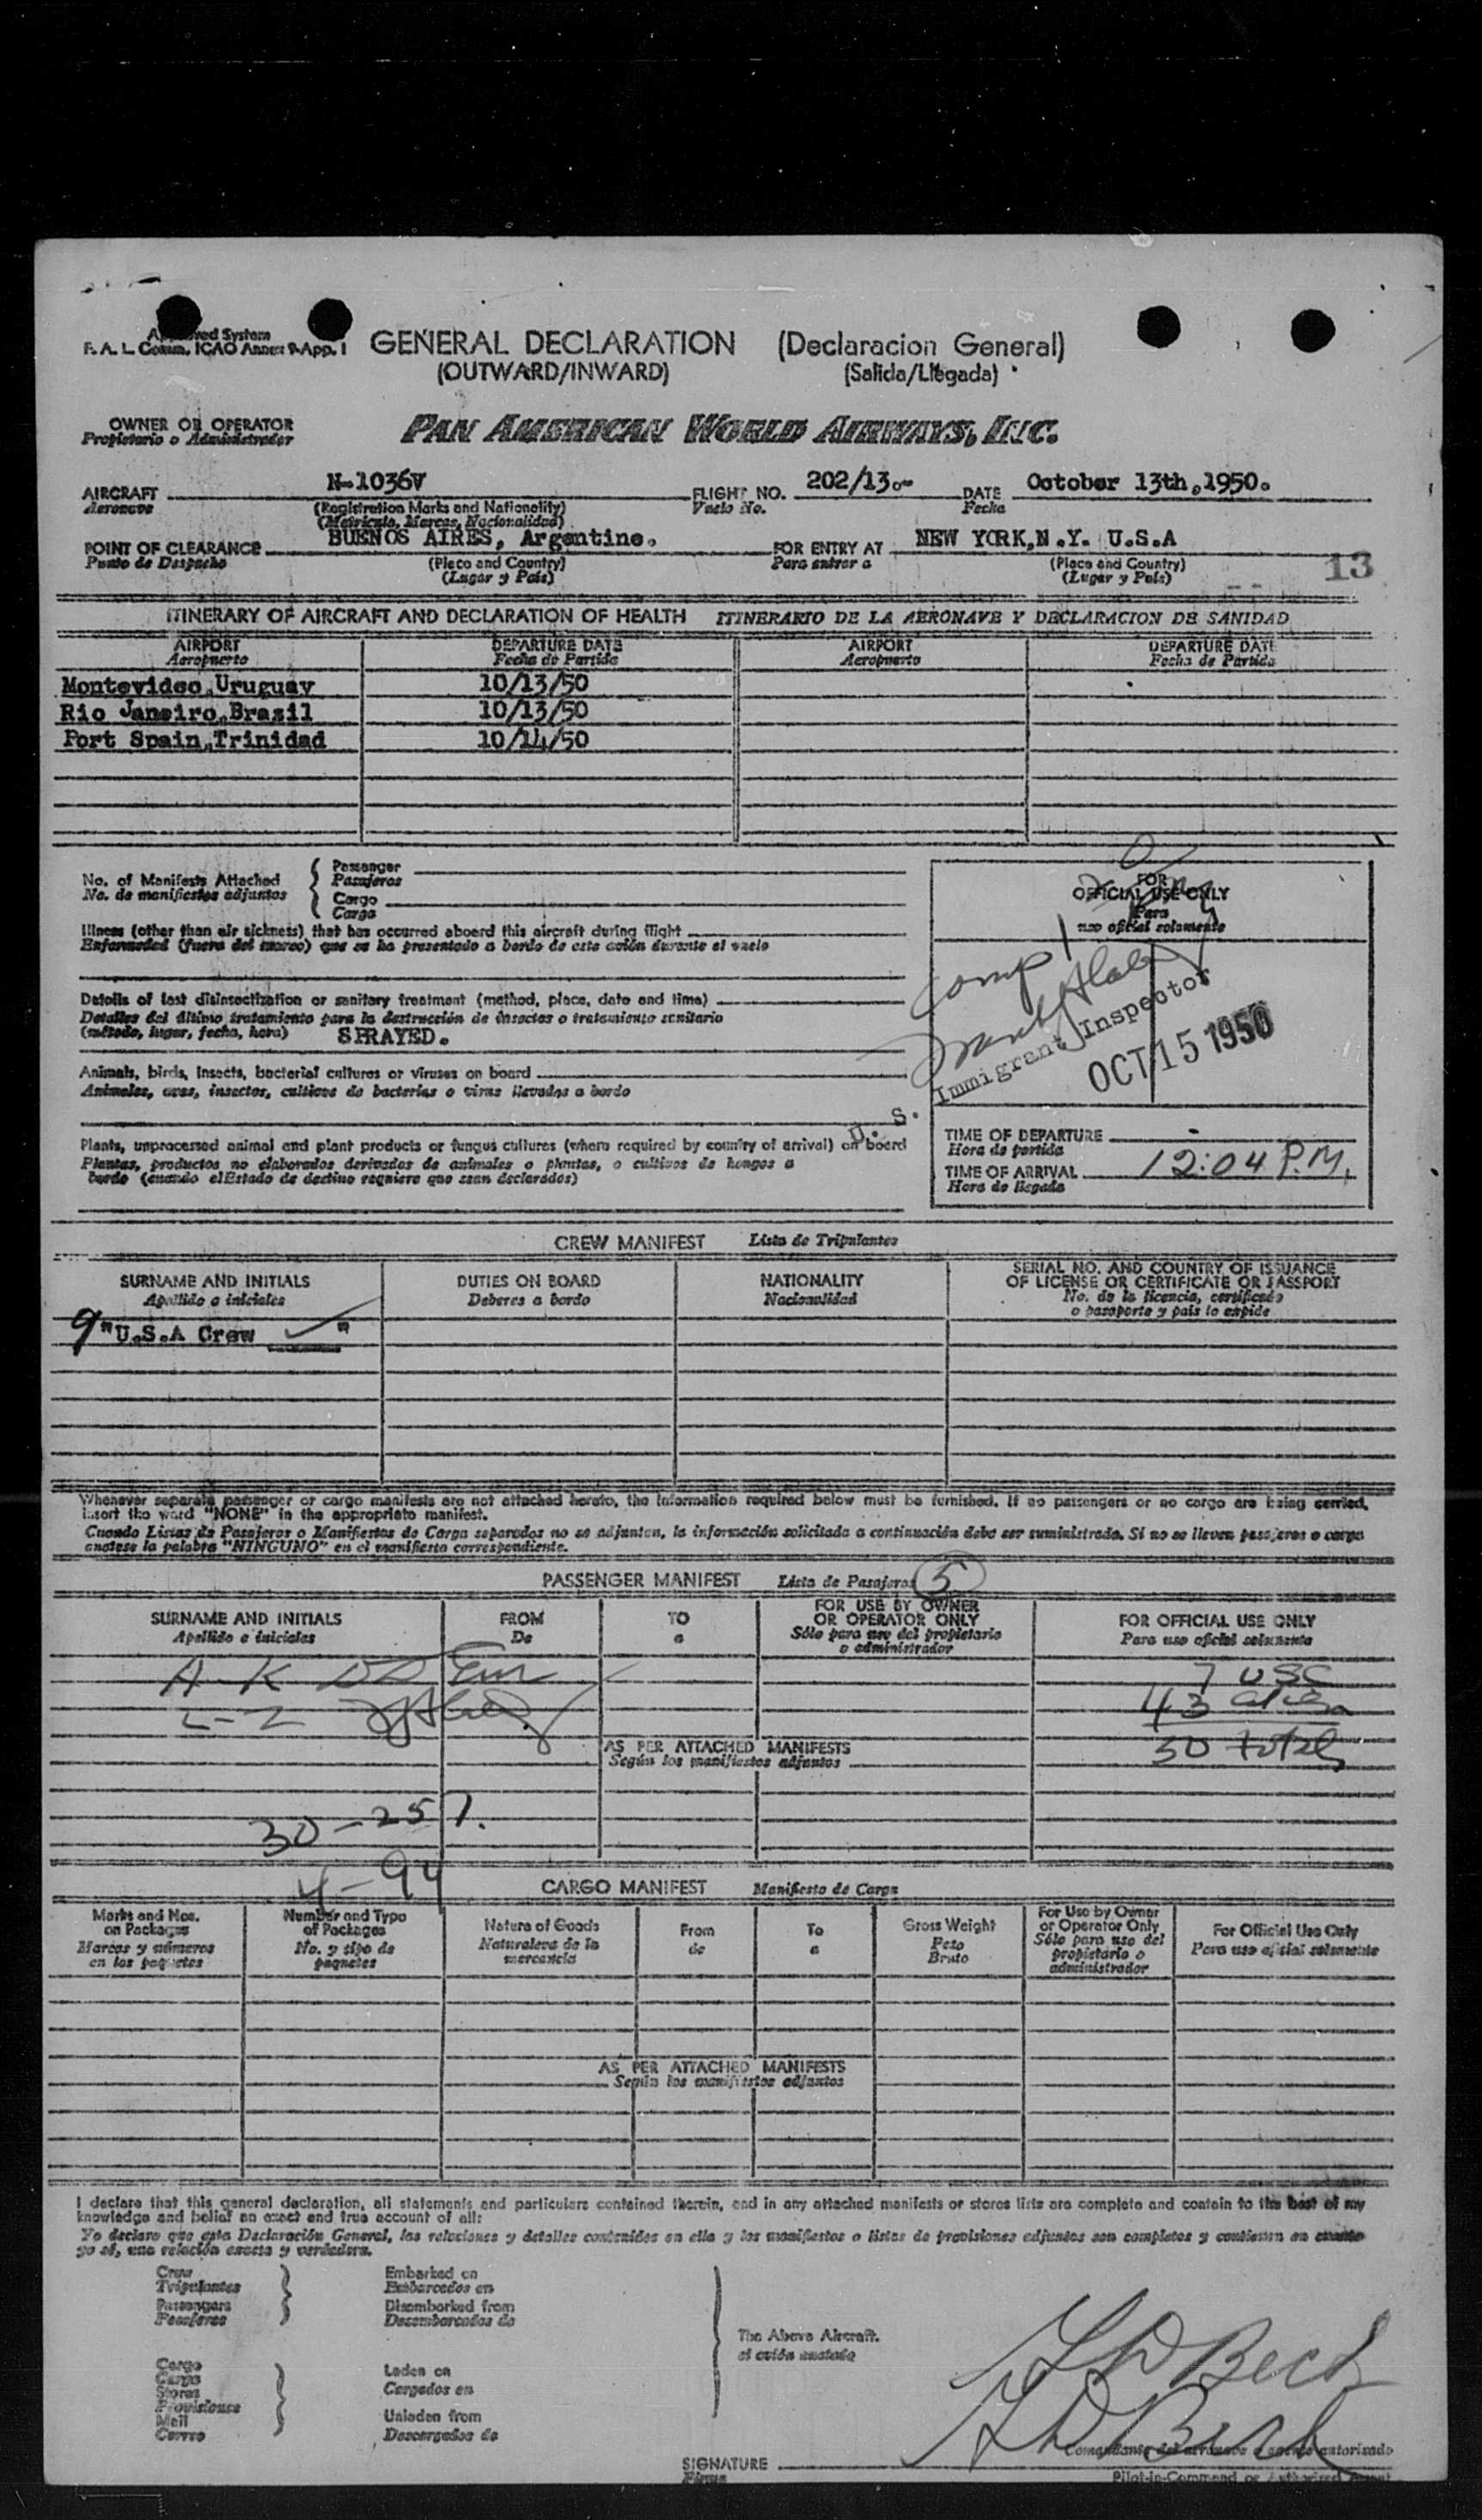 Approved System
F. A. L. Comm. ICAO Annex 9-App. 1
GENERAL DECLARATION (Declaracion General)
(OUTWARD/INWARD) (Salida/Llegada)
OWNER OR OPERATOR
Propietario o Administrador
PAN AMERICAN WORLD AIRWAYS, INC.
AIRCRAFT N-1036V FLIGHT NO. 202/13 DATE October 13th,1950.
Aeronave (Registration Marks and Nationality) Vuelo No. Fecha
(Matricula, Marcas, Nacionalidad)
POINT OF CLEARANCE BUENOS AIRES, Argentine. FOR ENTRY AT NEW YORK,N.Y. U.S.A
Punto de Despacho (Place and Country) Para entrar a (Place and Country)
(Lugar y País) (Lugar y País)
13
ITINERARY OF AIRCRAFT AND DECLARATION OF HEALTH ITINERARIO DE LA AERONAVE Y DECLARACION DE SANIDAD
AIRPORT DEPARTURE DATE AIRPORT DEPARTURE DATE
Aeropuerto Fecha de Partida Aeropuerto Fecha de Partida
Montevideo,Uruguay 10/13/50
Rio Janeiro,Brasil 10/13/50
Port Spain,Trinidad 10/14/50
No. of Manifests Attached
No. de manifiestos adjuntos
Passenger
Pasajeros
Cargo
Carga
Illness (other than air sickness) that has occurred aboard this aircraft during flight
Enfermedad (fuera del mareo) que se ha presentado a bordo de este avión durante el vuelo
Details of last disinsectization or sanitary treatment (method, place, date and time)
Detalles del último tratamiento para la destrucción de insectos o tratamiento sanitario
(método, lugar, fecha, hora) SPRAYED.
Animals, birds, insects, bacterial cultures or viruses on board
Animales, aves, insectos, cultivos de bacterias o virus llevados a bordo
Plants, unprocessed animal and plant products or fungus cultures (where required by country of arrival) on board
Plantas, productos no elaborados derivados de animales o plantas, o cultivos de hongos a
bordo (cuando el Estado de destino requiere que sean declarados)
FOR
OFFICIAL USE ONLY
Para
uso oficial solamente
comp
U. S. Immigrant Inspector
OCT 15 1950
TIME OF DEPARTURE
Hora de partida
TIME OF ARRIVAL 12:04 P.M.
Hora de llegada
CREW MANIFEST Lista de Tripulantes
SURNAME AND INITIALS DUTIES ON BOARD NATIONALITY
Apellido e iniciales Deberes a bordo Nacionalidad
SERIAL NO. AND COUNTRY OF ISSUANCE
OF LICENSE OR CERTIFICATE OR PASSPORT
No. de la licencia, certificado
o pasaporte y pais lo expide
9 "U.S.A Crew "
Whenever separate passenger or cargo manifests are not attached hereto, the information required below must be furnished. If no passengers or no cargo are being carried,
insert the word "NONE" in the appropriate manifest.
Cuando Listas de Pasajeros o Manifiestos de Carga separados no se adjuntan, la información solicitada a continuación debe ser suministrada. Si no se lleven pasajeros o carga
anotese la palabra "NINGUNO" en el manifiesto correspondiente.
PASSENGER MANIFEST Lista de Pasajeros 5
SURNAME AND INITIALS FROM TO
Apellido e iniciales De a
FOR USE BY OWNER
OR OPERATOR ONLY
Sólo para uso del propietario
o administrador
FOR OFFICIAL USE ONLY
Para uso oficial solamente
A-K
L-Z
7 USC
43 alien
50 total
AS PER ATTACHED MANIFESTS
Según los manifiestos adjuntos
30-257.
4-94
CARGO MANIFEST Manifiesto de Carga
Marks and Nos.
on Packages
Marcas y números
en los paquetes
Number and Type
of Packages
No. y tipo de
paquetes
Nature of Goods
Naturaleza de la
mercancía
From
de
To
a
Gross Weight
Peso
Bruto
For Use by Owner
or Operator Only
Sólo para uso del
propietario o
administrador
For Official Use Only
Para uso oficial solamente
AS PER ATTACHED MANIFESTS
Según los manifiestos adjuntos
I declare that this general declaration, all statements and particulars contained therein, and in any attached manifests or stores lists are complete and contain to the best of my
knowledge and belief an exact and true account of all:
Yo declaro que esta Declaración General, las relaciones y detalles contenidos en ella y los manifiestos o listas de provisiones adjuntos son completos y contienen en cuanto
yo sé, una relación exacta y verdadera.
Crew
Tripulantes
Passengers
Pasajeros
Embarked on
Embarcados en
Disembarked from
Desembarcados de
Cargo
Carga
Stores
Provisiones
Mail
Correo
Laden on
Cargados en
Unladen from
Descargados de
The Above Aircraft.
el avión anotado
Beck
Beck
SIGNATURE
Firma
Comandante del aeronave o agente autorizado
Pilot-in-Command or Authorized Agent